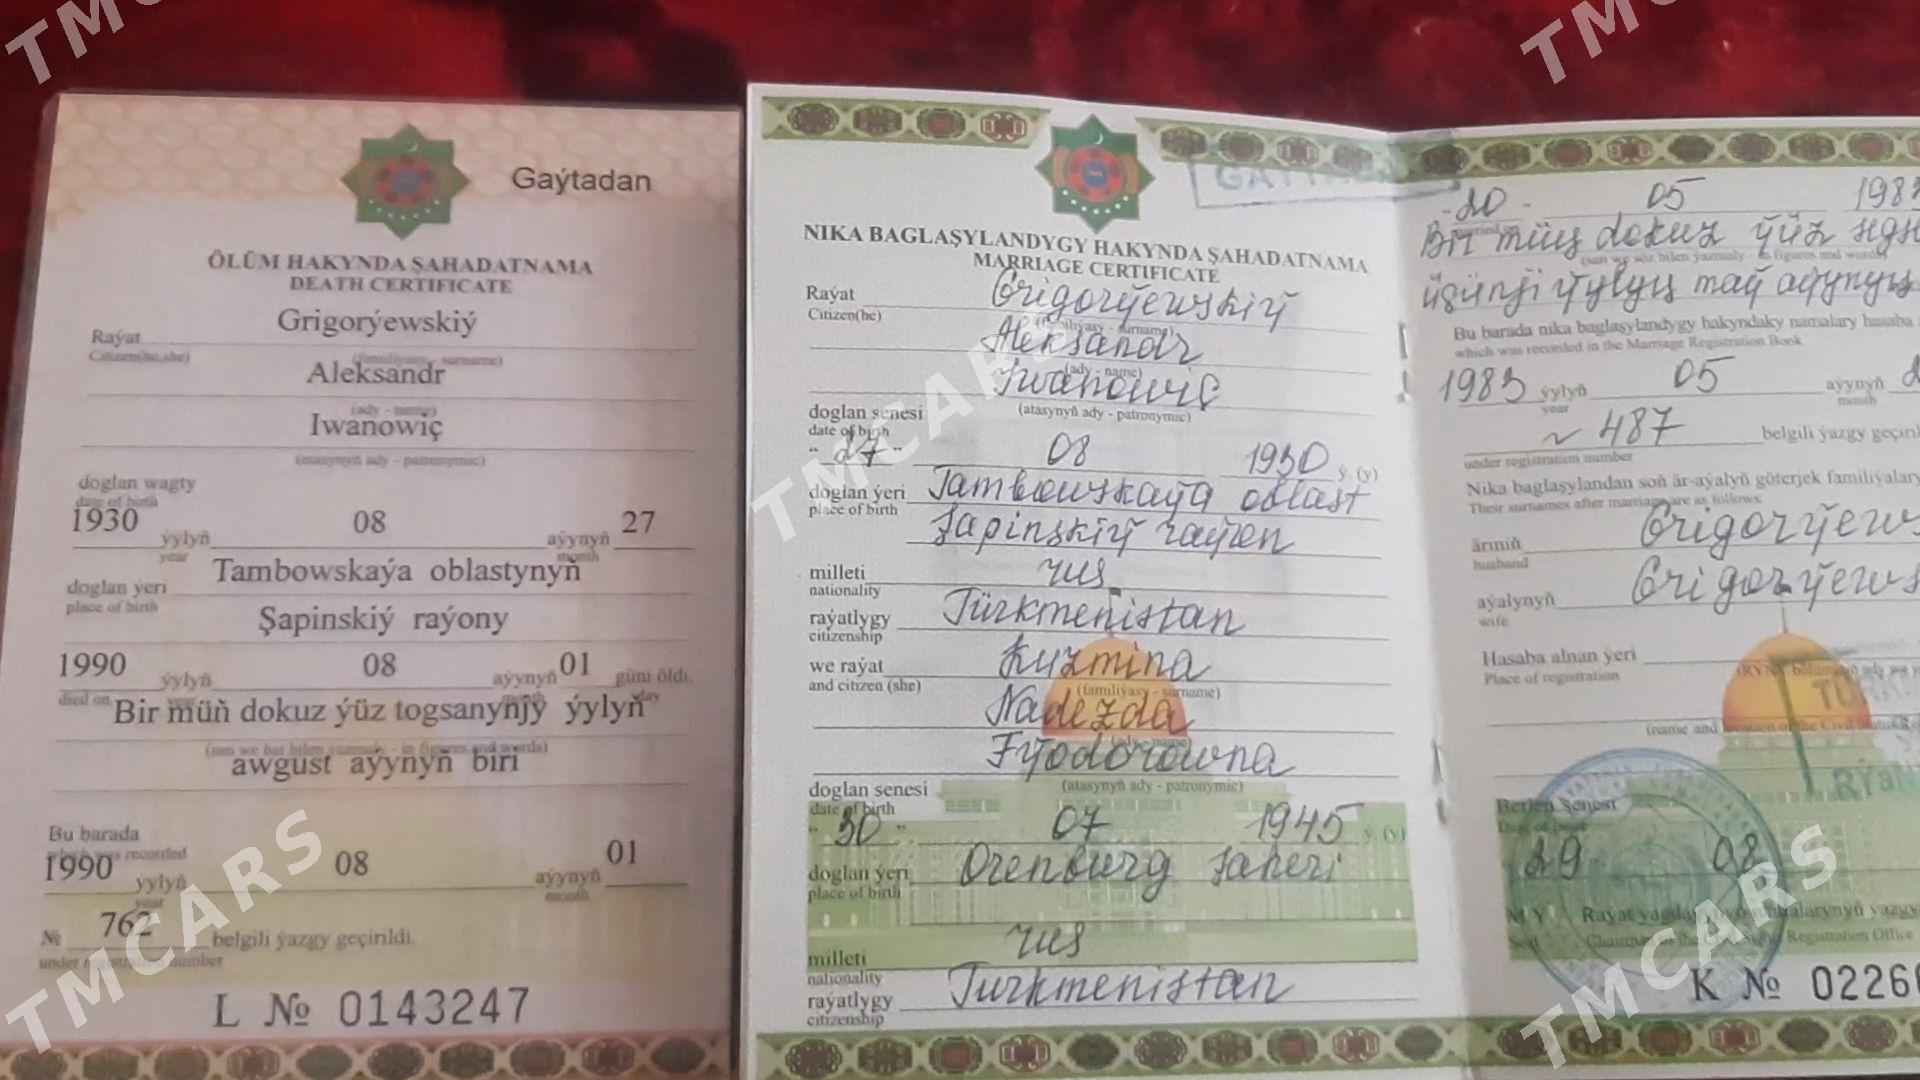 Gaýtadan
ÖLÜM HAKYNDA ŞAHADATNAMA
DEATH CERTIFICATE
Grigorýewskiý
Raýat
Citizen(he,she)
(familiýasy - surname)
Aleksandr
(ady - name)
Iwanowiç
(atasynyň ady - patronymic)
doglan wagty
date of birth
1930 ýylyň 08 aýynyň 27
year month
Tambowskaýa oblastynyň
doglan ýeri
place of birth
Şapinskiý raýony
1990 ýylyň 08 aýynyň 01 güni öldi.
died on month day
Bir müň dokuz ýüz togsanynjy ýylyň
(san we hat bilen ýazmaly - in figures and words)
awgust aýynyň biri
Bu barada
which was recorded
1990 ýylyň 08 aýynyň 01
year month
№ 762 belgili ýazgy geçirildi.
under registration number
L № 0143247
NIKA BAGLAŞYLANDYGY HAKYNDA ŞAHADATNAMA
MARRIAGE CERTIFICATE
Raýat Grigorýewskiý
Citizen(he)
(familiýasy - surname)
Aleksandr
(ady - name)
Iwanowiç
(atasynyň ady - patronymic)
doglan senesi
date of birth
"27" 08 1930 ý. (y)
doglan ýeri Tambowskaýa oblast
place of birth
Şapinskiý raýon
milleti rus
nationality
raýatlygy Türkmenistan
citizenship
we raýat Kuzmina
and citizen (she)
(familiýasy - surname)
Nadezda
Fýodorowna
(atasynyň ady - patronymic)
doglan senesi
date of birth
"30" 07 1945 ý. (y)
doglan ýeri Orenburg şäheri
place of birth
milleti rus
nationality
raýatlygy Turkmenistan
citizenship
20 05
Bir müň dokuz ýüz
(san we söz bilen ýazmaly - in figures and words)
üçünji ýylyň maý aýynyň
Bu barada nika baglaşylandygy hakyndaky namalary hasaba
which was recorded in the Marriage Registration Book
1983 ýylyň 05 aýynyň
year month
№ 487 belgili ýazgy
under registration number
Nika baglaşylandan soň är-aýalyň göterjek familiýalary
Their surnames after marriage are as follows:
äriniň
husband
aýalynyň
wife
Hasaba alnan ýeri
Place of registration
Berlen senesi
29 08
M.Ý.
Seal
Registration Office
K №
TMCARS
TMCARS
TMCARS
TMCARS
TMCARS